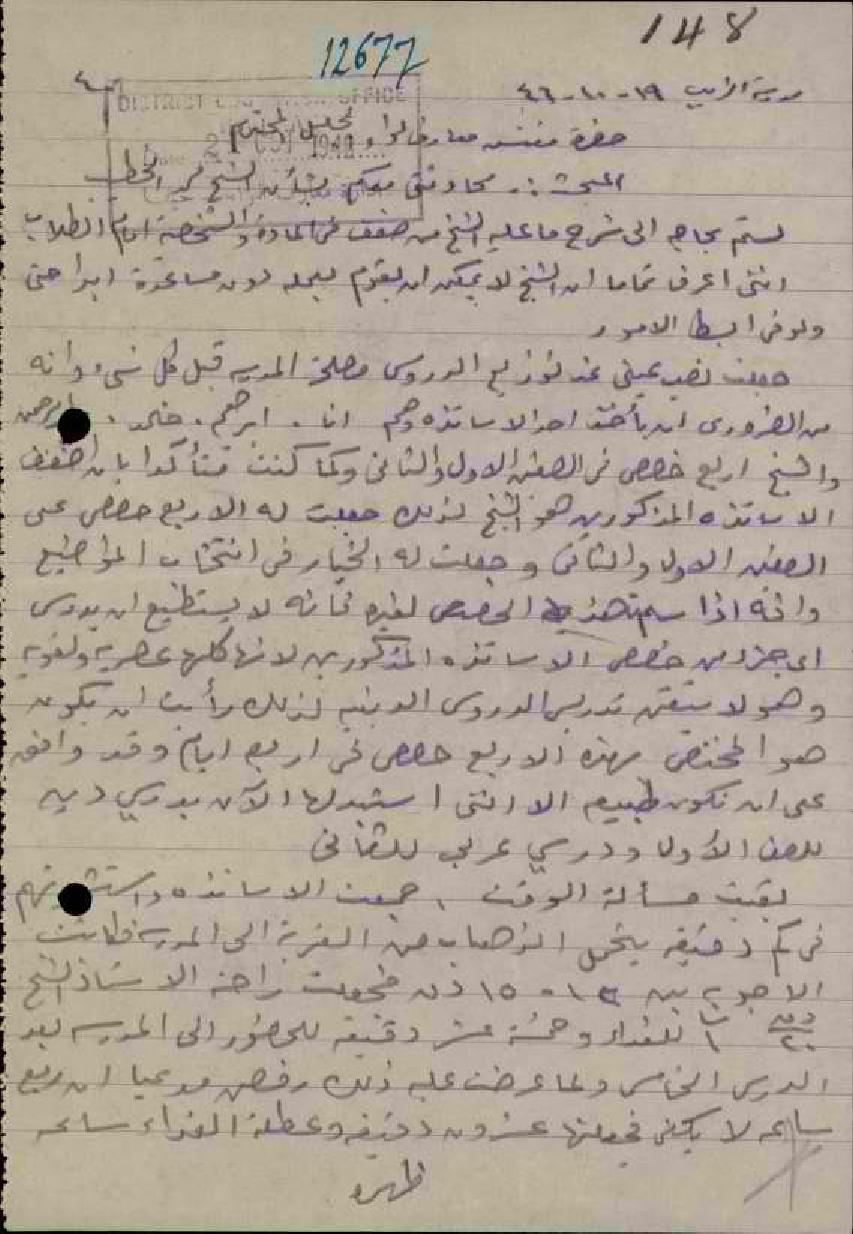 148
12677
مدرسة الزيب ١٩-١٠-٤٦
DISTRICT EDUCATION OFFICE
حضرة مفتش معارف لواء الجليل المحترم
المبحث :. محادثتي معكم بشأن الشيخ نمر الخطيب
لستم بحاجه الى شرح ما عليه الشيخ من ضعف في المادة والشخصية امام الطلاب
انني اعرف تماما ان الشيخ لا يمكن ان يقوم بعمله دون مساعدة ابدا حتى
ولو في ابسط الامور
جعلت نصب عيني عند توزيع الدروس مصلحة المدرسه قبل كل شيء وانه
من الضروري ان يأخذ احد الاساتذه وهم انا . ابرهيم . خالد .
والشيخ اربع حصص في الصفين الاول والثاني ولما كنت متأكدا بان اضعف
الاساتذه المذكورين هو الشيخ لذلك جعلت له الاربع حصص على
الصفين الاول والثاني وجعلت له الخيار في انتخاب المواضيع
وانه اذا سلم هذه الحصص لغيره فانه لا يستطيع ان يدرس
اي جزء من حصص الاساتذه المذكورين لانها كلها عصريه ولغويه
وهو لا يتقن تدريس الدروس الدينيه لذلك رأيت ان يكون
هو المختص بهذه الاربع حصص في اربع ايام وقد وافق
على ان تكون طبيعه الا انني استبدلها الآن بدرسي دين
للصف الأول ودرسي عربي للثاني
بقيت مسألة الوقت ، جمعت الاساتذه واستشرتهم
في كم دقيقه يتحمل الذهاب من القرية الى المدرسة فكانت
الاجوبه بين ١٠ - ١٥ دق فجعلت راحة الاستاذ الشيخ
للغداء وخمسة عشر دقيقه للحضور الى المدرسه بعد
الدرس الخامس ولما عرضت عليه ذلك رفض مدعيا ان ربع
ساعه لا يكفي فجعلتها عشرون دقيقه وعطلة الغداء ساعه
ظهره